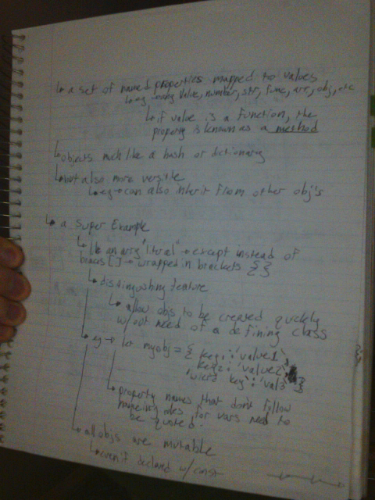 ↳ a set of named properties mapped to values
↳ eg → any value, number, str, func, arr, obj, etc
↳ if value is a function, the
property is known as a method
↳ objects much like a hash or dictionary
↳ but also more versatile
↳ eg → can also inherit from other obj's
↳ a Super Example
↳ like an array 'literal' → except instead of
braces [ ] → wrapped in brackets { }
↳ distinguishing feature
↳ allow objs to be created quickly
w/out need of a defining class
↳ eg → let myobj = { key1: 'value1',
key2: 'value2',
'wierd key': 'val3' }
↳ property names that don't follow
naming rules for vars need to
be quoted
↳ all objs are mutable
↳ even if declared w/ const